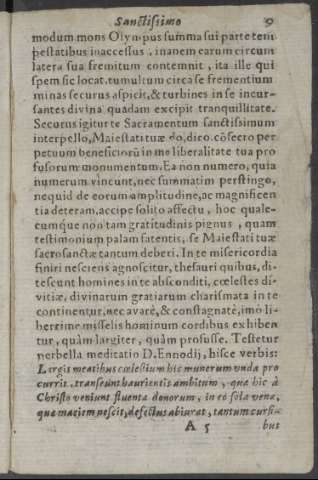 Sanctissimo 9
modum mons Olympus summa sui parte tem
pestatibus inaccessus, inanem earum circum
latera sua fremitum contemnit, ita ille qui
spem sic locat, tumultum circa se frementium
minas securus aspicit, & turbines in se incur-
santes divina quadam excipit tranquillitate.
Securus igitur te Sacramentum sanctissimum
interpello, Maiestati tuæ do, dico, cōsecro per
petuum beneficiorũ in me liberalitate tua pro
fusorum monumentum. Ea non numero, quia
numerum vincunt, nec summatim perstingo,
nequid de eorum amplitudine, ac magnificen
tia deteram, accipe solito affectu, hoc quale-
cumque non tam gratitudinis pignus, quam
testimonium palam fatentis, se Maiestati tuæ
sacrosanctæ tantum deberi. In te misericordia
finiri nesciens agnoscitur, thesauri quibus, di-
tescunt homines in te absconditi, cœlestes di-
vitiæ, divinarum gratiarum charismata in te
continentur, nec avarè, & constagnatè, imò li-
bertine misselis hominum cordibus exhiben
tur, quàm largiter, quàm profusse. Testetur
perbella meditatio D. Ennodij, hisce verbis:
Largis meatibus cœlestium hic munerum unda pro
currit, transeunt haurientis ambitum, quæ hic à
Christo veniunt fluenta donorum, in eo sola vena,
quæ maciem nescit, defectus abiurat, tantum cursiæ
A 5 bus